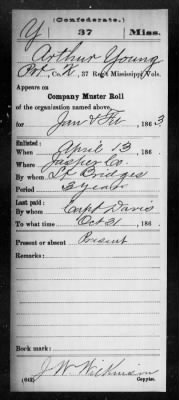 (Confederate.)
Y 37 Miss.
Arthur Young
Pvt, Co. K, 37 Reg't Mississippi Vols.
Appears on
Company Muster Roll
of the organization named above,
for Jan & Feb, 1863
Enlisted:
When April 13, 186 .
Where Jasper Co.
By whom Lt Bridges
Period 3 years
Last paid:
By whom Capt Davis
To what time Oct 31, 186 .
Present or absent Present
Remarks:
Book mark:
(642) J. W. Wilkinson
Copyist.